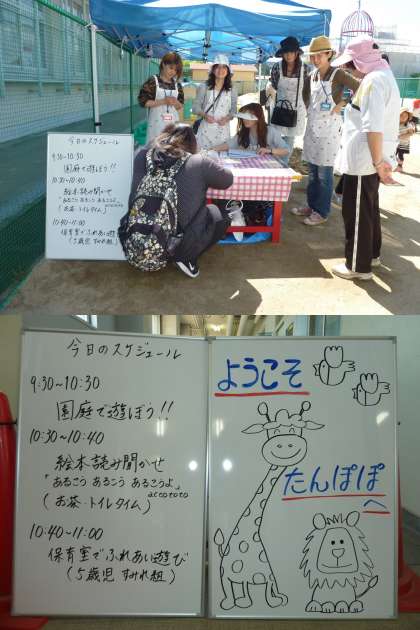 今日のスケジュール
9:30~10:30
園庭で遊ぼう!!
10:30~10:40
絵本読み聞かせ
(お茶・トイレタイム)
10:40~11:00
保育室でふれあい遊び
(5歳児 すみれ組)
今日のスケジュール
9:30~10:30
園庭で遊ぼう!!
10:30~10:40
絵本読み聞かせ
「あるこう あるこう あるこうよ」
accototo
(お茶・トイレタイム)
10:40~11:00
保育室でふれあい遊び
(5歳児 すみれ組)
ようこそ
たんぽぽ
へ